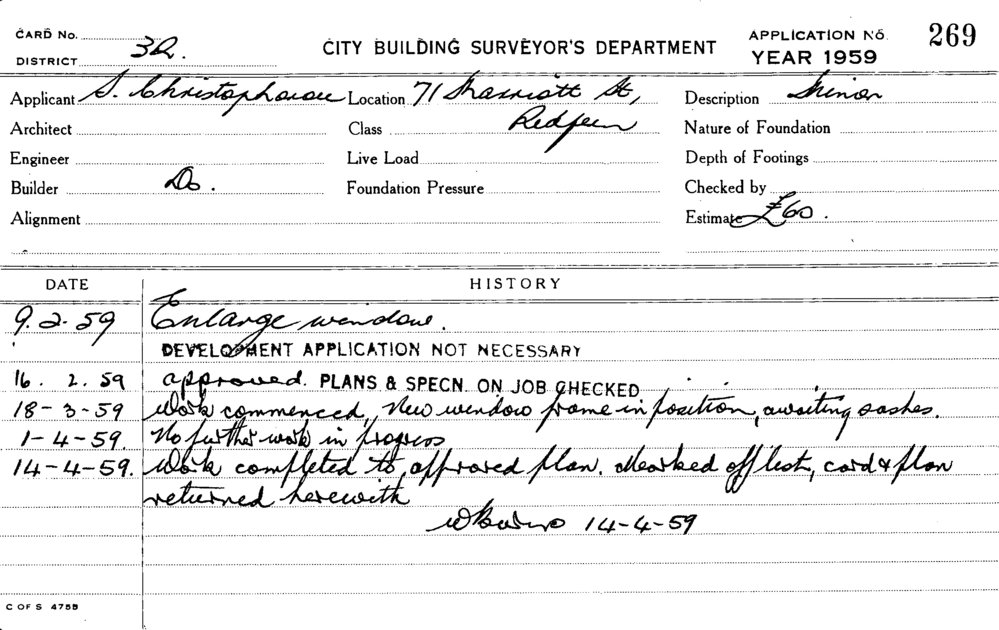 CARD No.
DISTRICT 3R.
CITY BUILDING SURVEYOR'S DEPARTMENT
APPLICATION No. 269
YEAR 1959
Applicant S. Location 71 Marriott St, Description Minor
Architect Class Redfern Nature of Foundation
Engineer Live Load Depth of Footings
Builder Do. Foundation Pressure Checked by
Alignment Estimate £60.
DATE HISTORY
9.2.59 Enlarge window.
DEVELOPMENT APPLICATION NOT NECESSARY
16. 2. 59 approved. PLANS & SPECN. ON JOB CHECKED
18-3-59 Work commenced, New window frame in position, awaiting sashes.
1-4-59. No further work in progress
14-4-59. Work completed to approved plan. Marked off list, card & plan
returned herewith
14-4-59
C OF S 4755